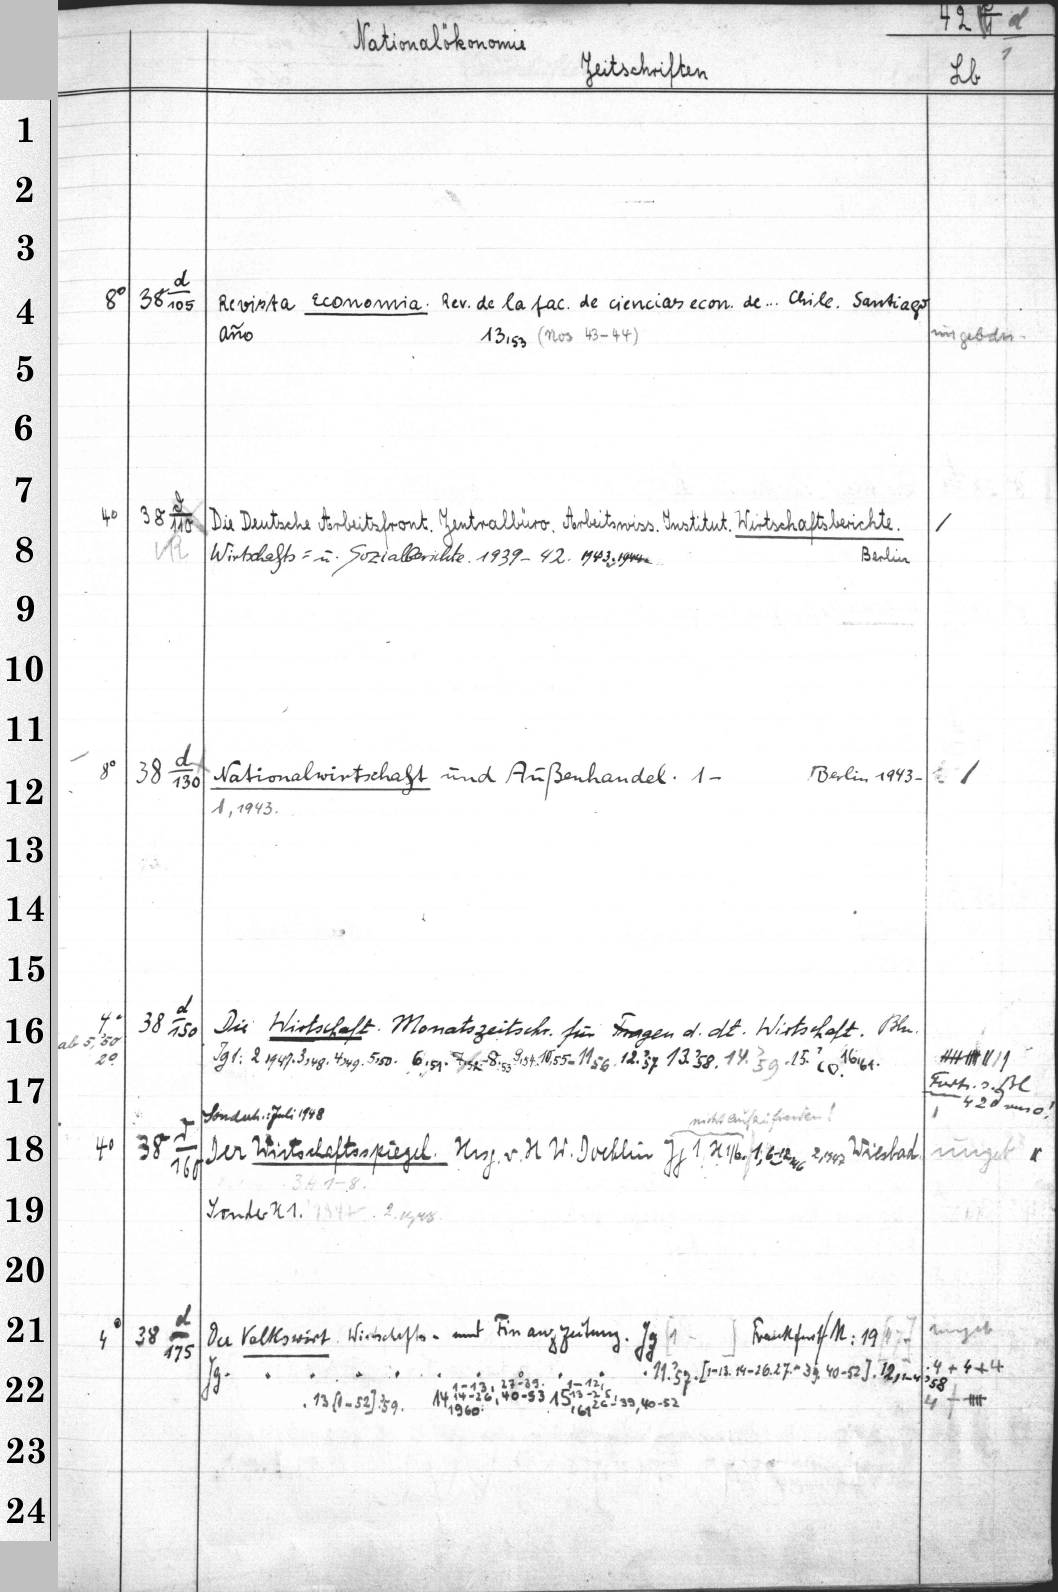 42 d
1
Nationalökonomie
Zeitschriften
Lb
1
2
3
4
8° 38 d/105 Revista Economia. Rev. de la fac. de ciencias econ. de... Chile. Santiago
año 13,53 (Nos 43-44) ungebdn.
5
6
7
4° 38 d/110 Die Deutsche Arbeitsfront. Zentralbüro. Arbeitswiss. Institut. Wirtschaftsberichte. /
8
Wirtschafts= u. Sozialberichte. 1939-42. 1943. 1944 Berlin
9
10
11
8° 38 d/130 Nationalwirtschaft und Außenhandel. 1- Berlin 1943- /
12
1, 1943.
13
14
15
4° 38 d/150 Die Wirtschaft. Monatszeitschr. für Fragen d. dt. Wirtschaft. Bln.
16
ab 5,'50 2° Jg 1: 2 1947. 3,48. 4,49. 5,50. 6,51. 7,52-8,53 9,54. 10,55-11,56. 12.57 13.58. 14.59. 15. 60. 16,61.
17
Forts. s. Bl
42 d
Sonderh.: Juli 1948 nicht aufzufinden!
18
4° 38 d/160 Der Wirtschaftsspiegel. Hrsg. v. H. W. Doeblin Jg 1, 2,1947 Wiesbad. ungeb
3 H 1-8.
19
Sonder H 1. 2. 1948.
20
21
4° 38 d/175 Der Volkswirt. Wirtschafts- und Finanzzeitung. Jg [1 - ] Frankfurt/M: 19[47]- ungeb
22
Jg. 11.57. [1-13. 14-26. 27-39. 40-52]. 12,1-4,58 4+4+4
13 [1-52] 59. 14 1-13, 14-26, 27-39, 40-53 1960. 15 1-12, 13-25, 26-39, 40-52 '61 4
23
24